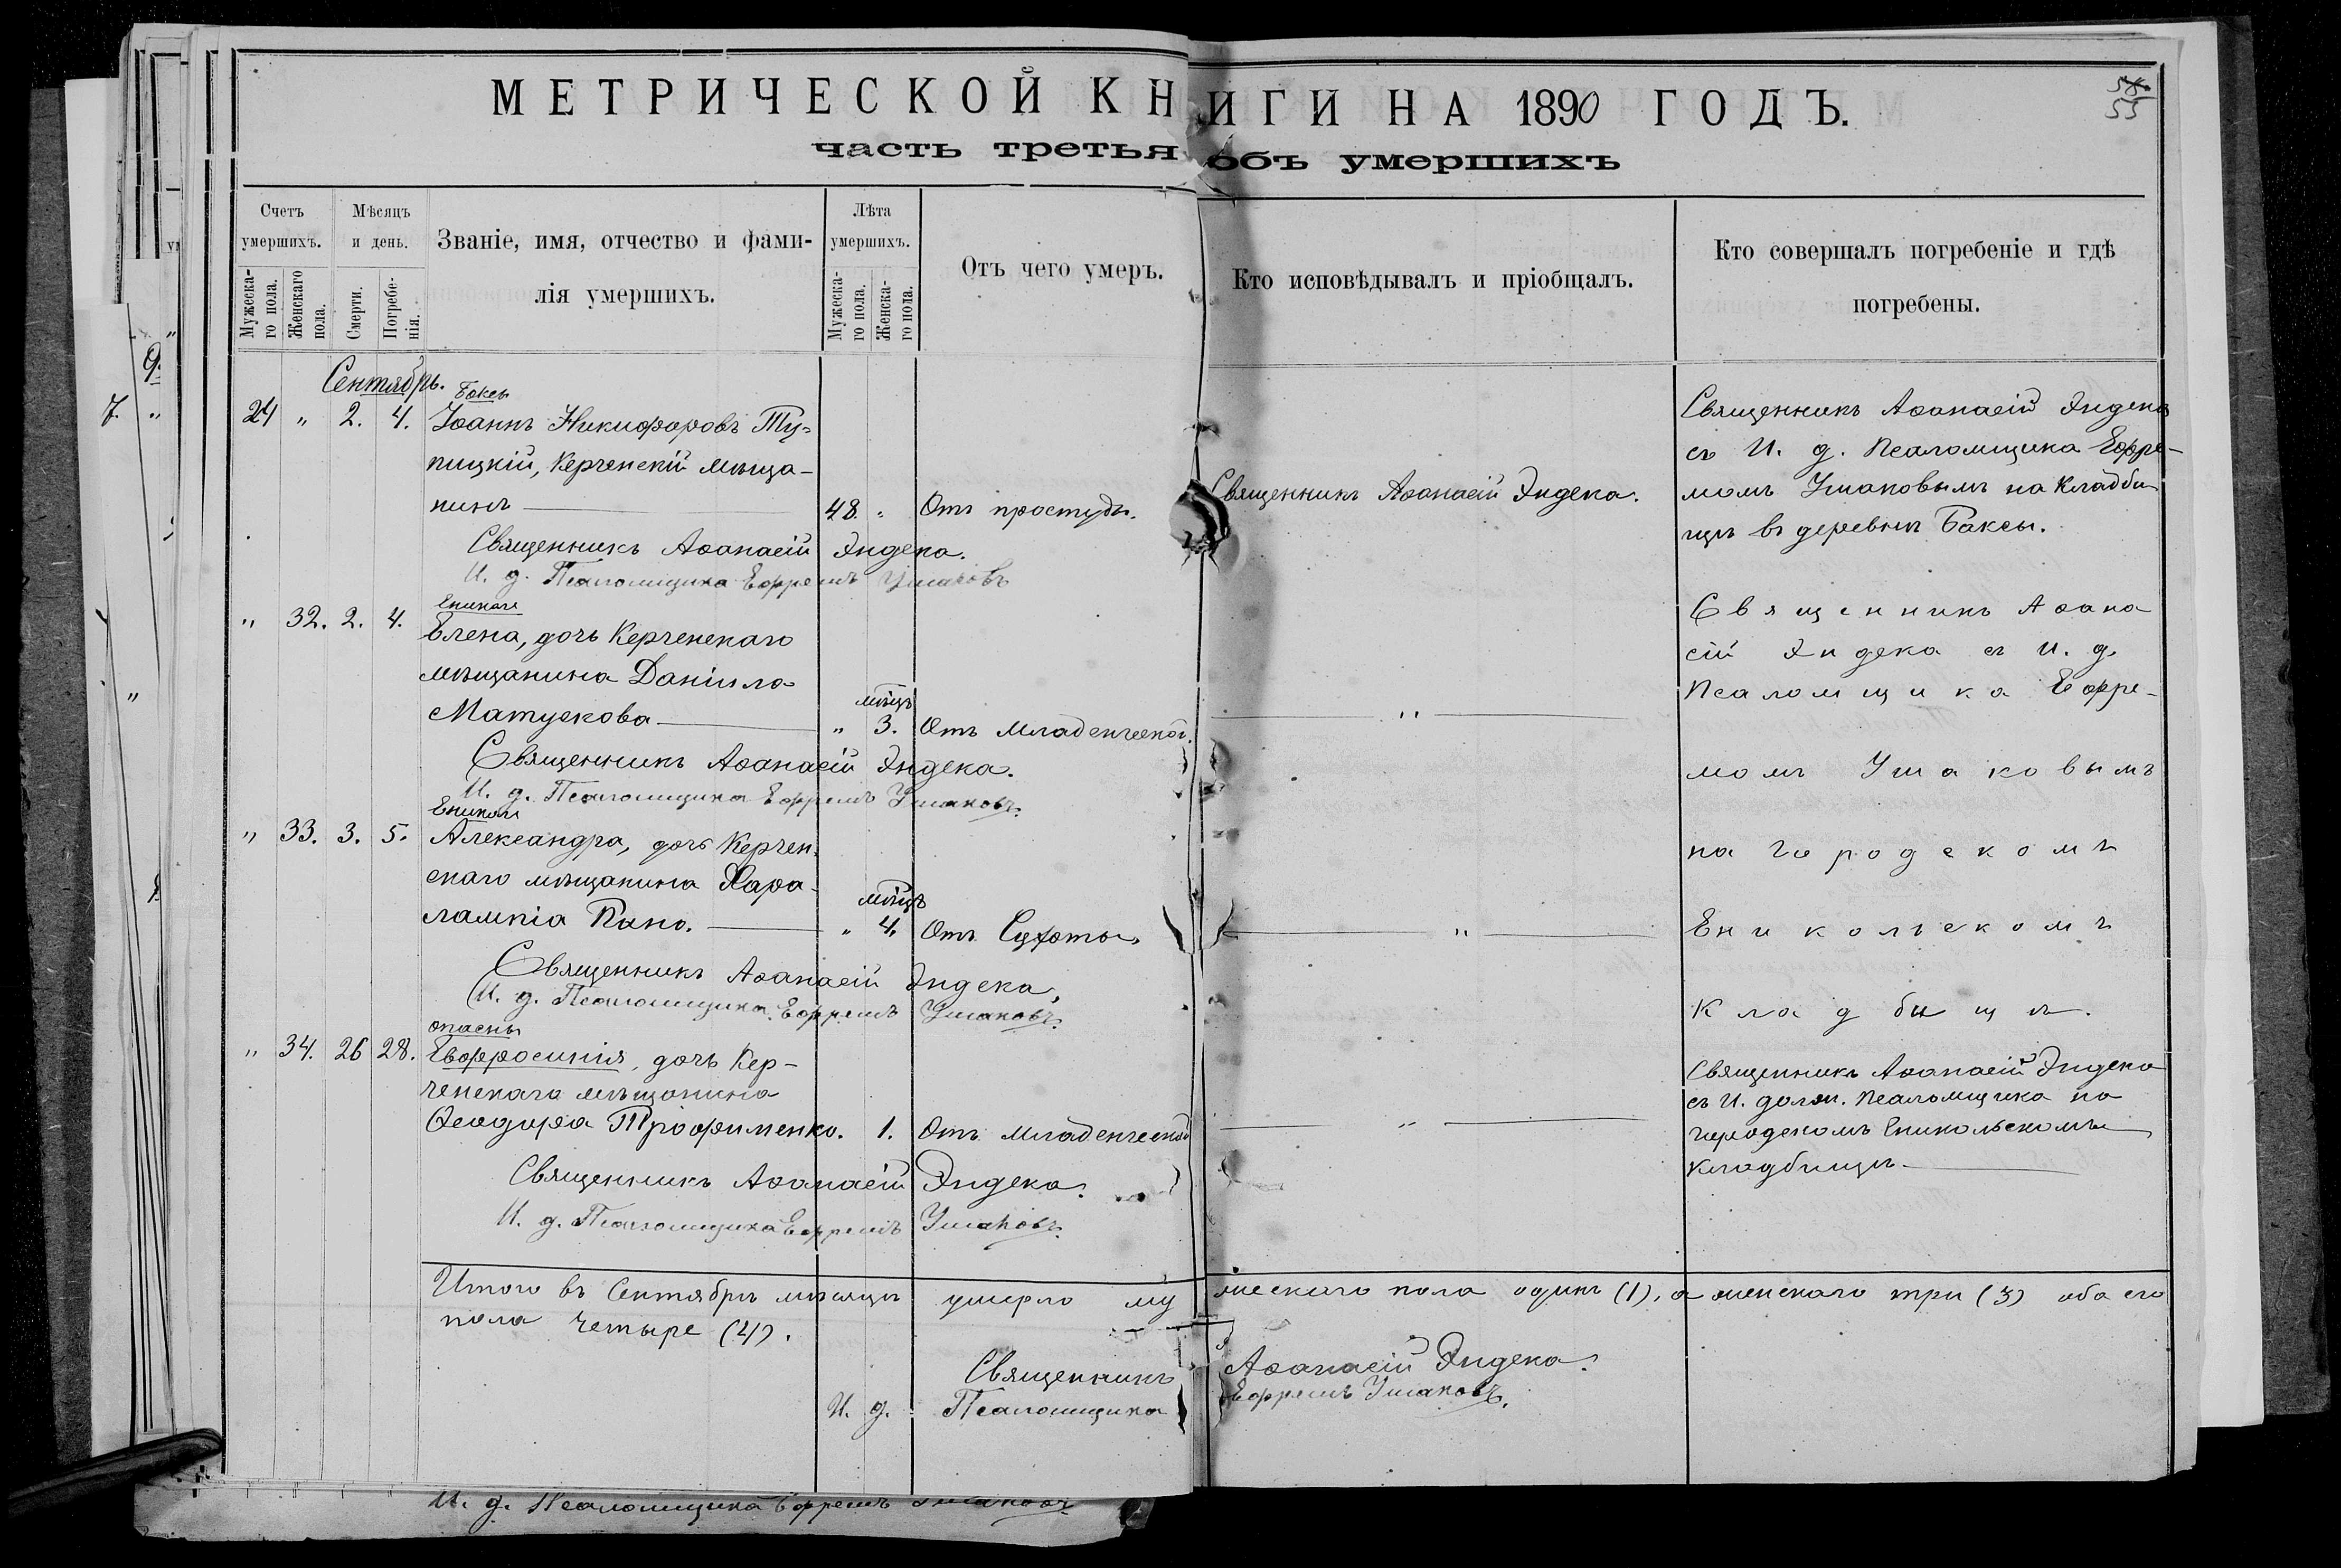 МЕТРИЧЕСКОЙ КНИГИ НА 1890 ГОДЪ.
55
часть третья объ умершихъ
Счетъ умершихъ.
Мужескаго пола.
Женскаго пола.
Мѣсяцъ и день.
Смерти.
Погребенія.
Званіе, имя, отчество и фами-
лія умершихъ.
Лѣта умершихъ.
Мужеска-
го пола.
Женска-
го пола.
Отъ чего умеръ.
Кто исповѣдывалъ и пріобщалъ.
Кто совершалъ погребеніе и гдѣ
погребены.
Сентябрь.
Баксы
24 " 2. 4. Іоаннъ Никифоровъ Ту-
пицкій, Керченскій мѣща-
нинъ 48. " Отъ простуды.
Священникъ Аѳанасій Эндека.
Священникъ Аѳанасій Эндека
съ И. д. Псаломщика Ефре-
момъ Ушаковымъ на кладби-
щѣ въ деревнѣ Баксы.
Священникъ Аѳанасій Эндека.
И. д. Псаломщика Ефремъ Ушаковъ
Еникале
" 32. 2. 4. Елена, дочь Керченскаго
мѣщанина Даніила
Матускова " мѣсцъ 3. Отъ младенческой.
"
Священникъ Аѳанасій Эндека.
И. д. Псаломщика Ефремъ Ушаковъ.
Еникале
" 33. 3. 5. Александра, дочь Керчен-
скаго мѣщанина Хара-
лампія Пано. " мѣсцъ 4. Отъ Сухоты.
"
Священникъ Аѳанасій Эндека.
И. д. Псаломщика Ефремъ Ушаковъ.
Священникъ Аѳана
сій Эндека съ И. д.
Псаломщика Ефре-
момъ Ушаковымъ
на городскомъ
Еникольскомъ
кладбищѣ.
опасны
" 34. 26 28. Евфросинія, дочь Кер-
ченскаго мѣщанина
Ѳеодора Трофименко. 1. Отъ младенческой
"
Священникъ Аѳанасій Эндека
съ И. долж. Псаломщика на
городскомъ Еникольскомъ
кладбищѣ.
Священникъ Аѳанасій Эндека.
И. д. Псаломщика Ефремъ Ушаковъ.
Итого въ Сентябрѣ мѣсяцѣ умерло мужескаго пола одинъ (1), а женскаго три (3) обаего
пола четыре (4).
Священникъ Аѳанасій Эндека.
И. д. Псаломщика Ефремъ Ушаковъ.
И. д. Псаломщика Ефремъ Ушаковъ